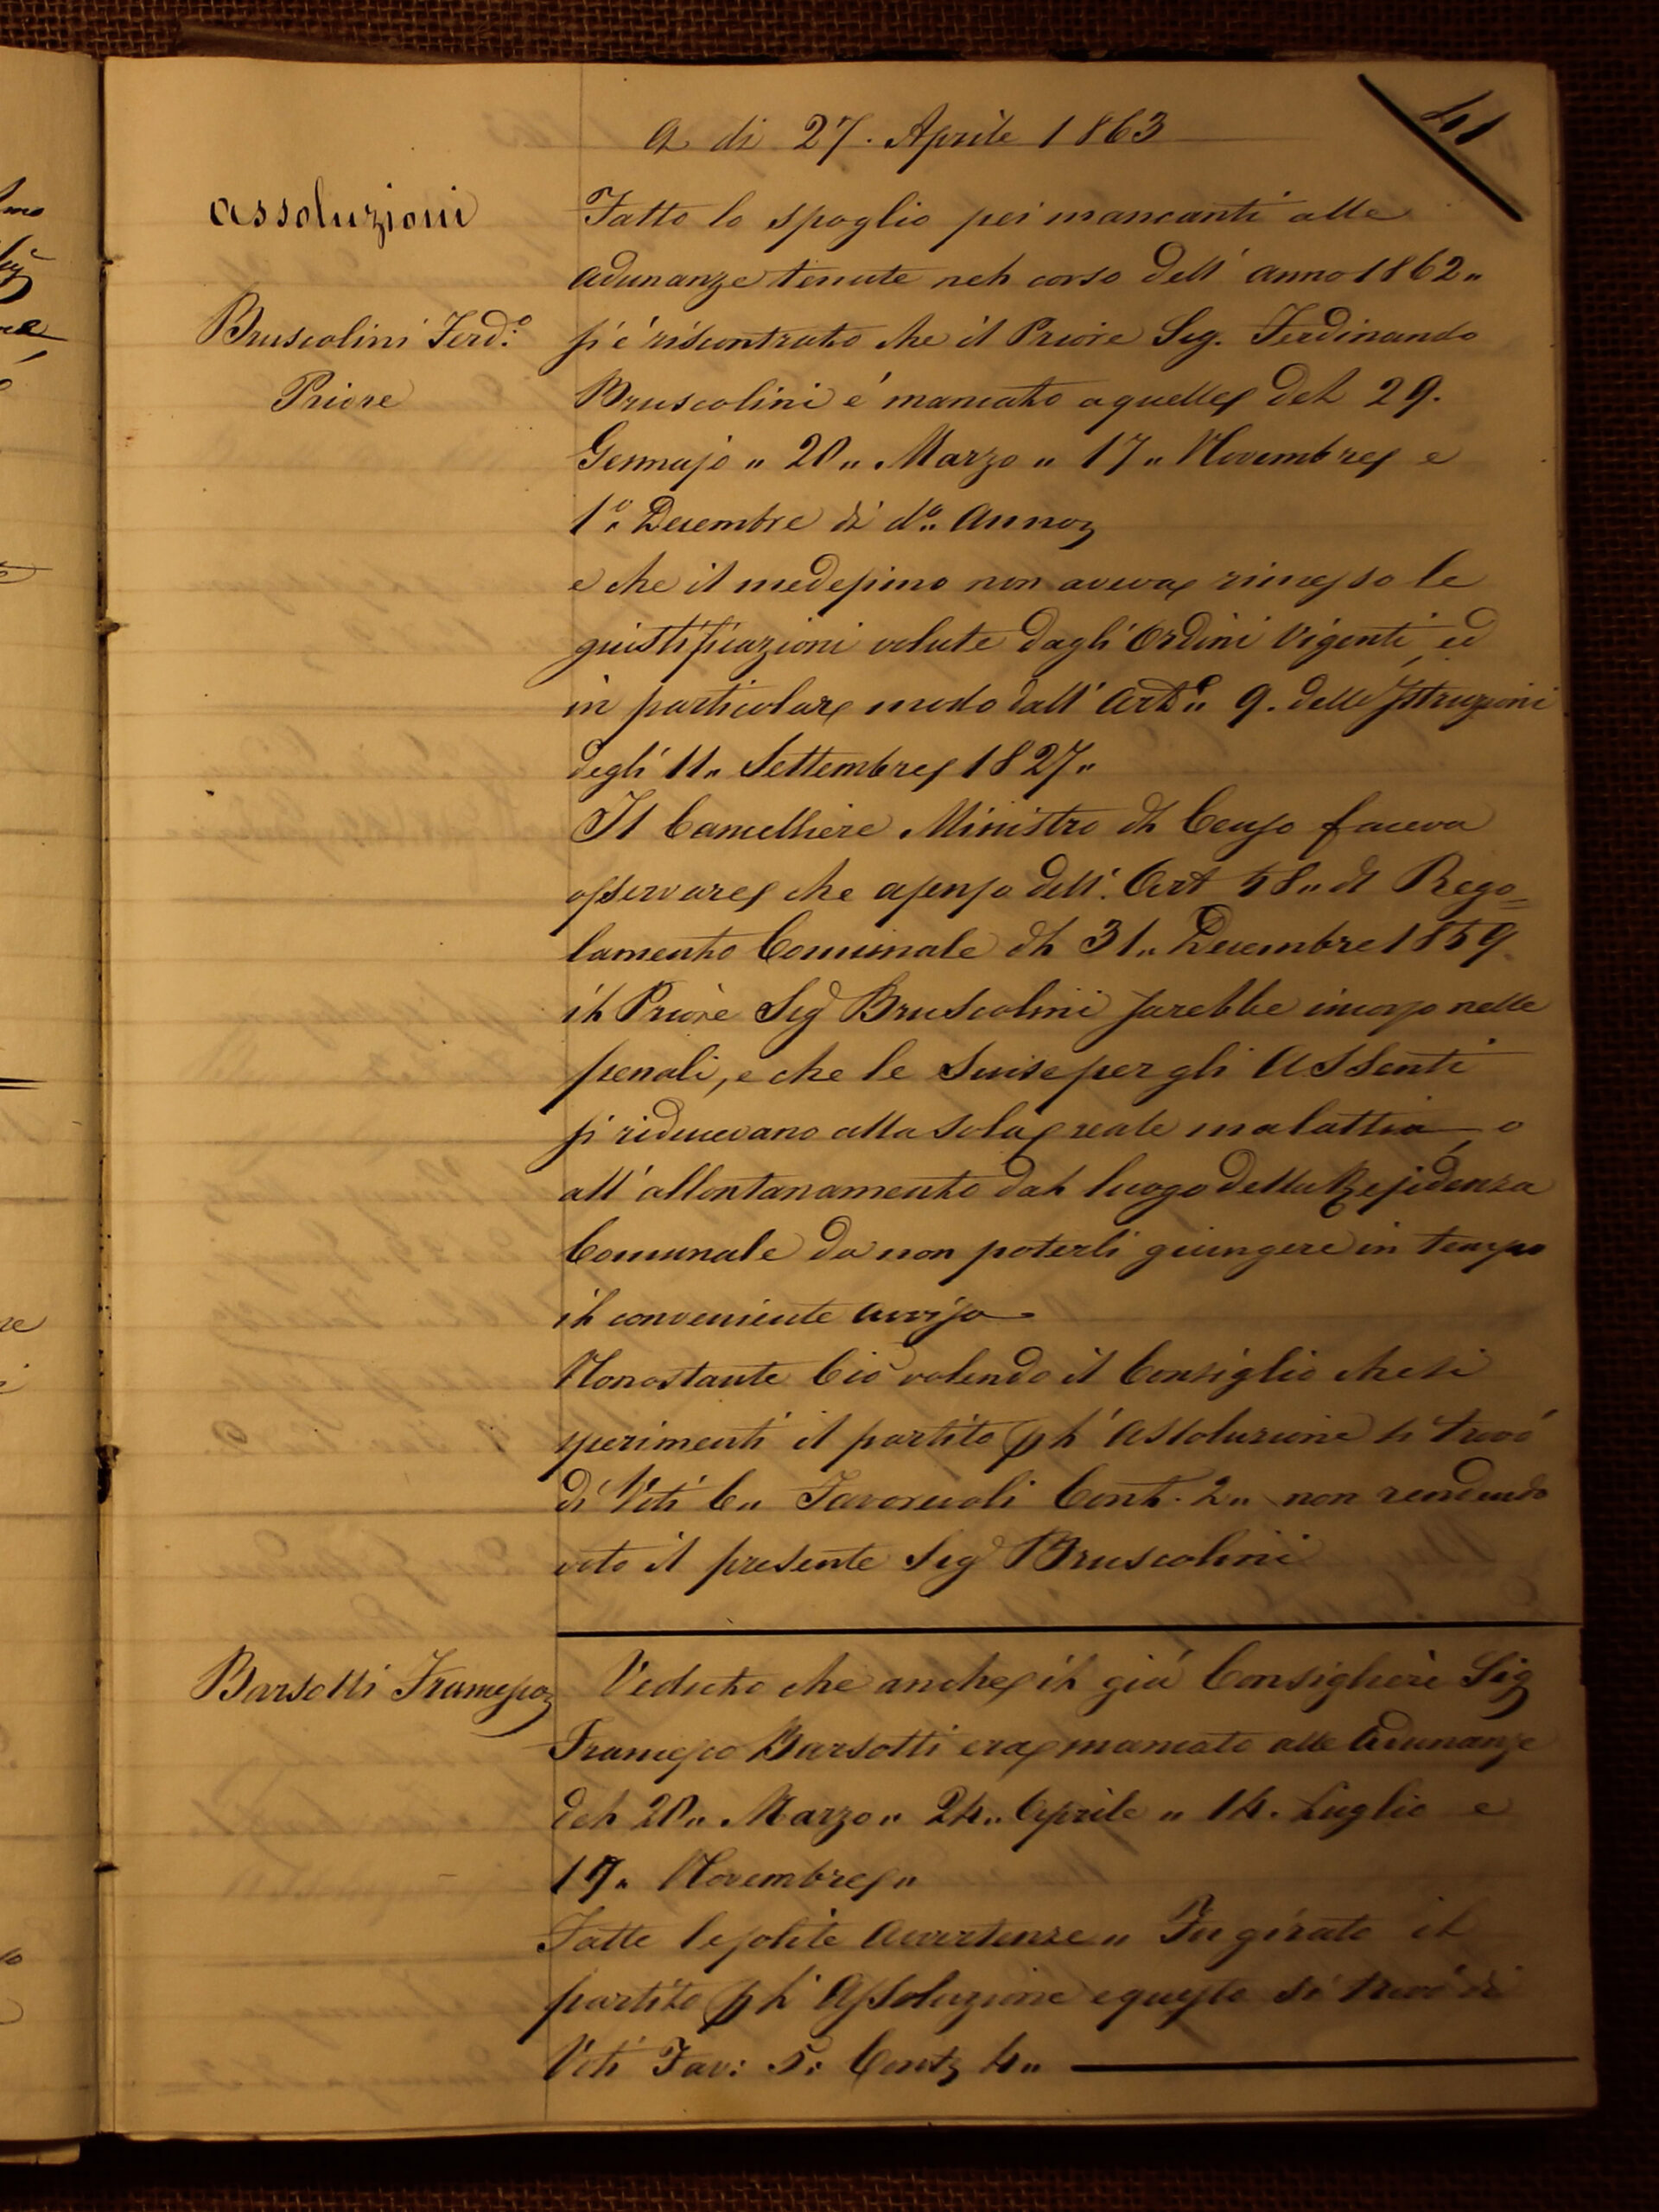 41
A di 27. Aprile 1863
Assoluzioni
Fatto lo spoglio pei mancanti alle
Adunanze tenute nel corso dell' anno 1862 "
Bruscolini Ferd.o
Priore
si é riscontrato che il Priore Sig. Ferdinando
Bruscolini é mancato a quelle del 29.
Gennajo " 20 " Marzo " 17 " Novembre e
1o " Decembre di do " Anno
e che il medesimo non aveva rimesso le
giustificazioni volute dagli Ordini Vigenti, ed
in particolare modo dall' Arto " 9. delle Istruzioni
degli 11 " Settembre 1827 "
Il Cancelliere Ministro del Censo faceva
osservare che a senso dell' Art 58 " del Rego=
lamento Comunale del 31 " Decembre 1859.
il Priore Sig Bruscolini sarebbe incorso nelle
penali, e che le Scuse per gli Assenti
si riducevano alla sola reale malattia, o
all' allontanamento dal luogo della Residenza
Comunale da non poterli giungere in tempo
il conveniente avviso
Nonostante Ciò volendo il Consiglio che si
sperimenti il partito p l' Assoluzione si trovó
di Voti 6 " Favorevoli Cont. 2 " non rendendo
voto il presente Sig Bruscolini
Barsotti Francesco
Veduto che anche il giá Consigliere Sig
Francesco Barsotti era mancato alle Adunanze
del 20 " Marzo " 24 " Aprile " 14. Luglio e
17 " Novembre "
Fatte le solite Avvertenze " Fu girato il
partito p l' Assoluzione e questo si trovó di
Voti Fav: 5: Cont 4 "